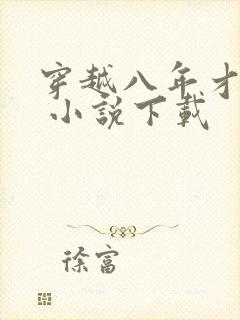 穿越八年才
小說下載
徐富